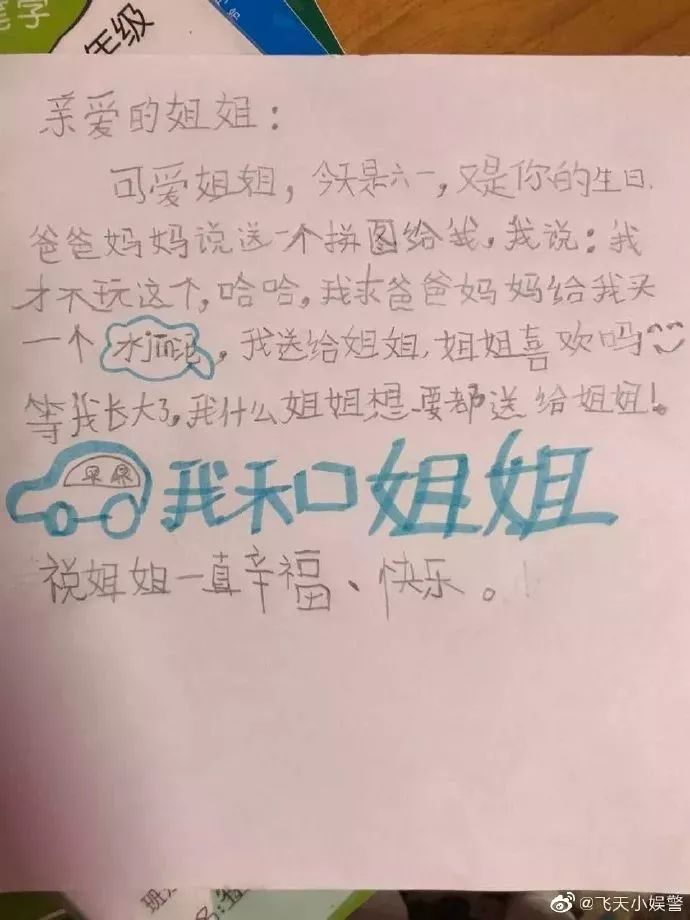 笔字
年级
亲爱的姐姐：
可爱姐姐，今天是六一，又是你的生日.
爸爸妈妈说送一个拼图给我，我说：我
才不玩这个，哈哈，我求爸爸妈妈给我买
一个水洒，我送给姐姐，姐姐喜欢吗
等我长大了，我什么姐姐想要都送给姐姐！
我和姐姐
祝姐姐一直幸福、快乐。
班
名:
@飞天小娱警